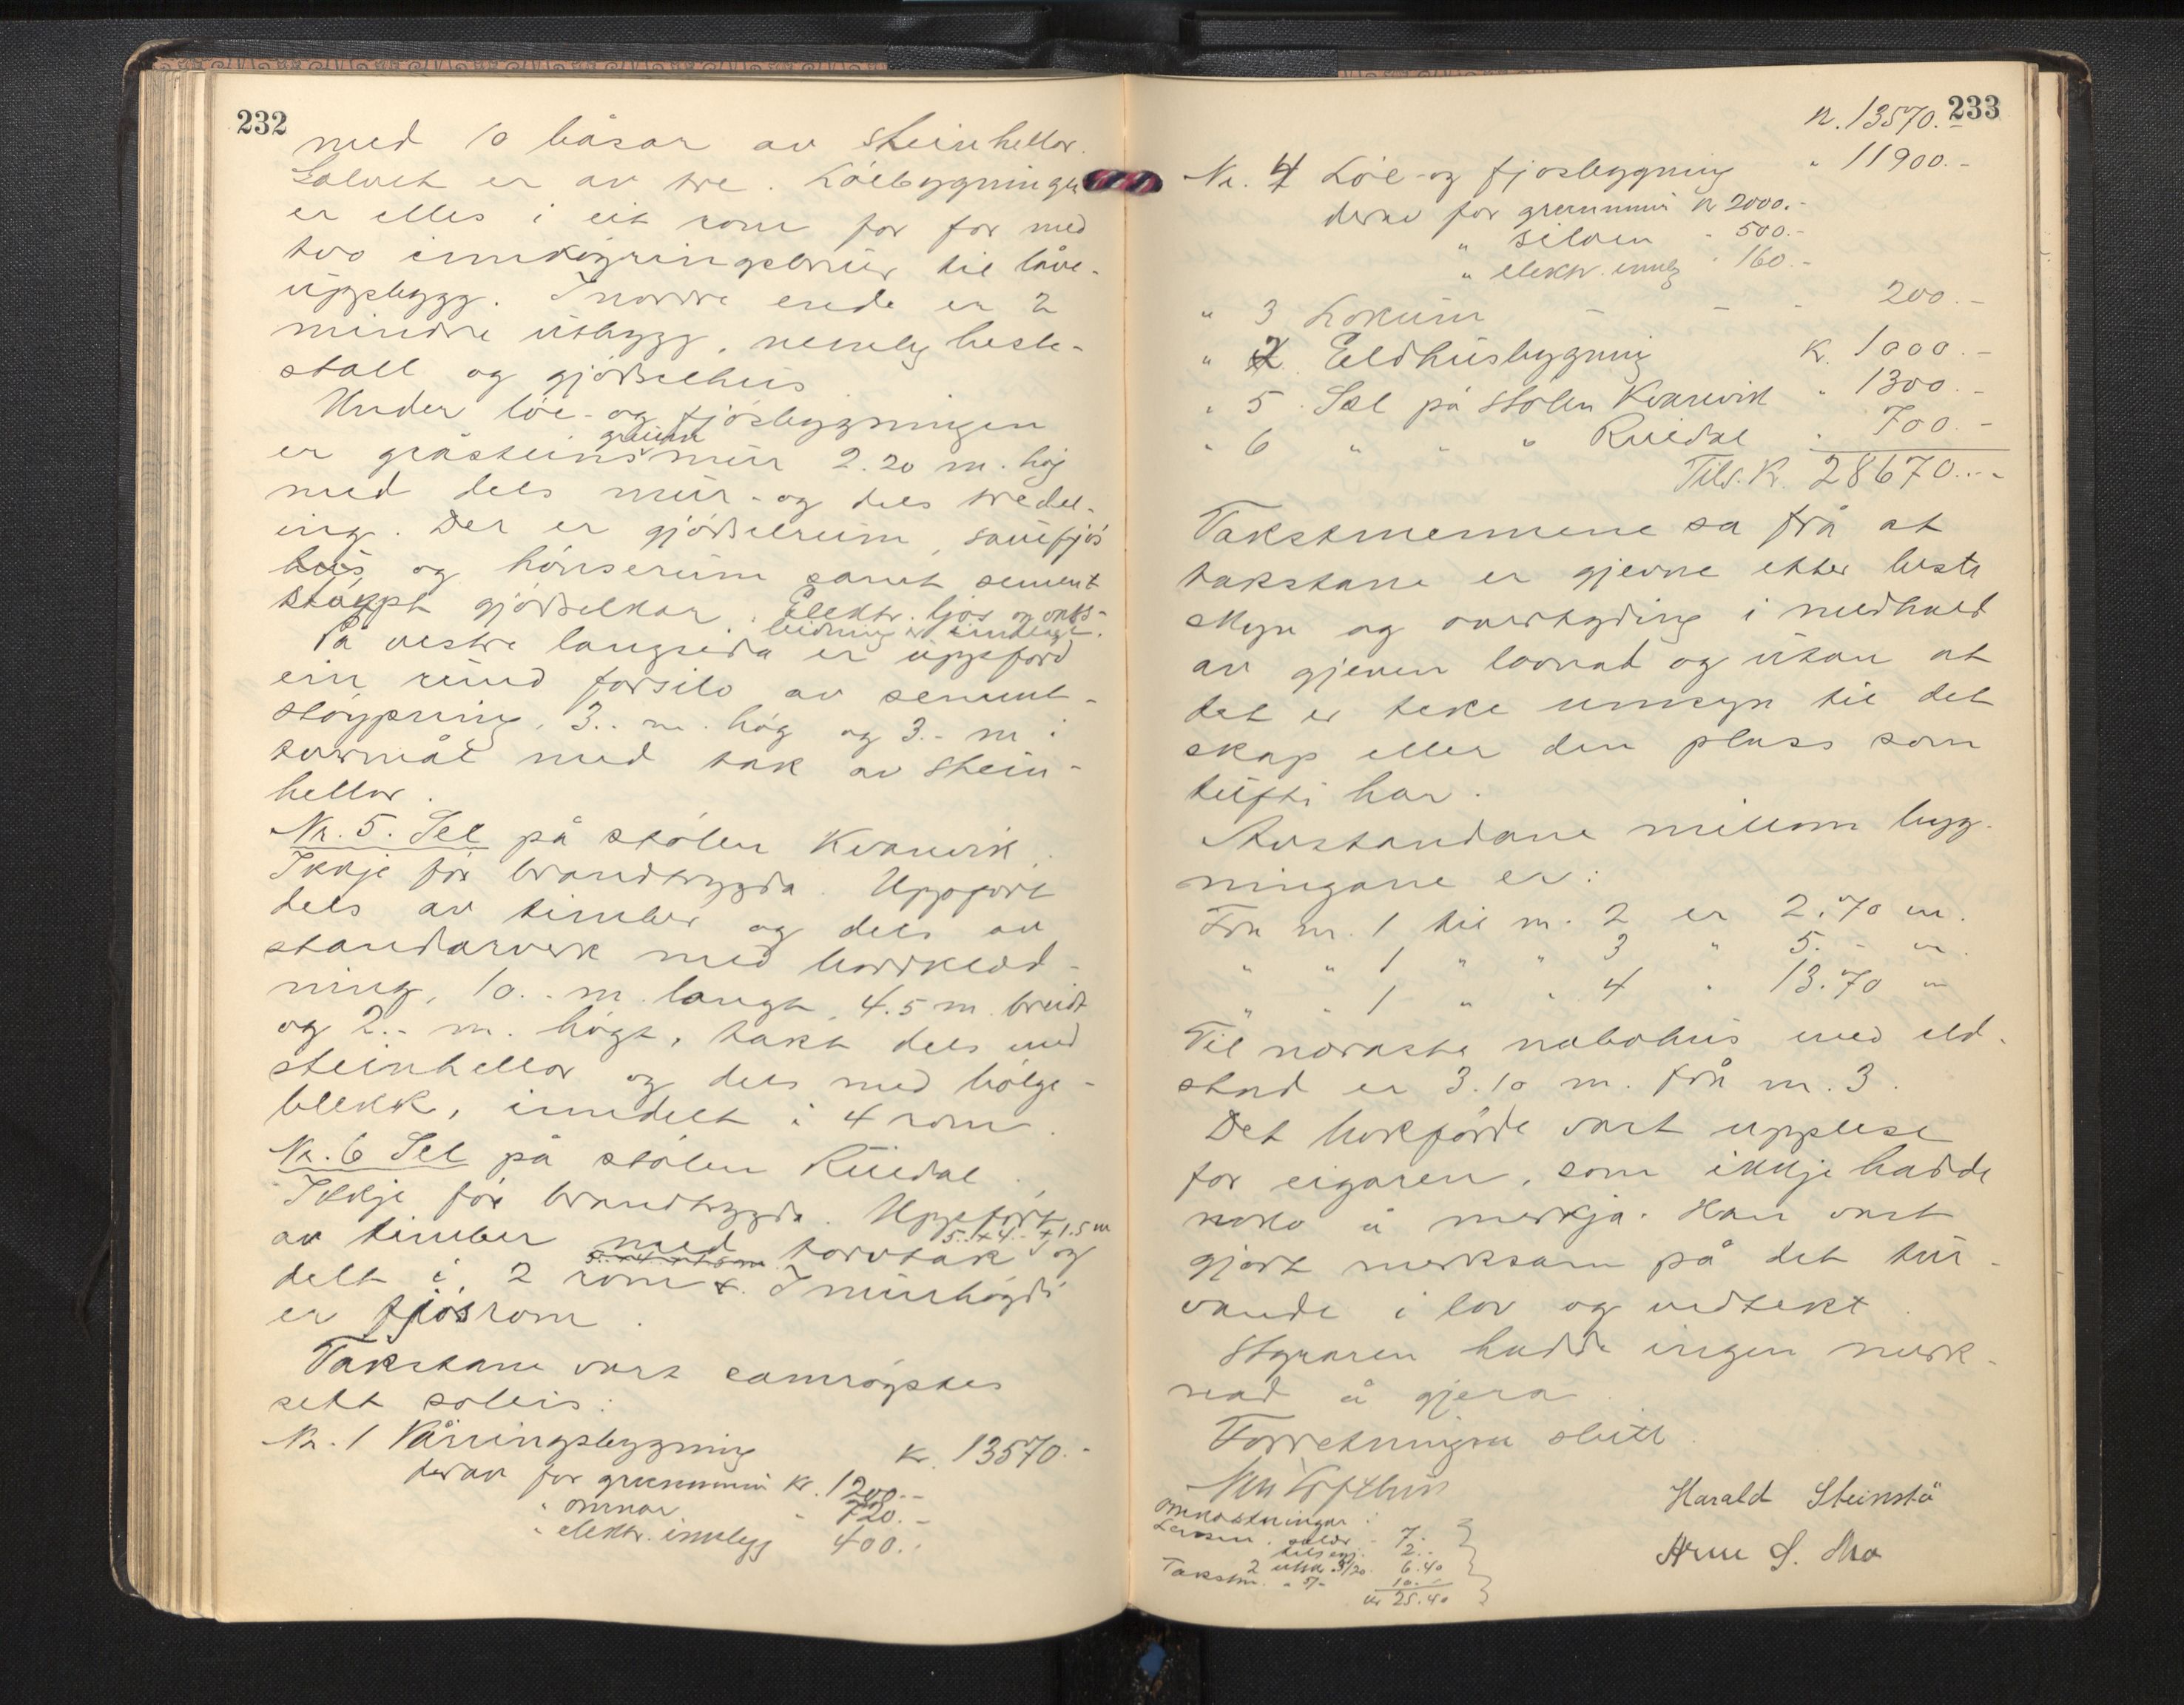 232
med 10 båsar av steinhellor.
Golvet er av tre. Löebygningen
er elles i eit rom for för med
two innköyringsbruer til låve-
uppbygg. I nordre ende er 2
mindre utbygg, nemleg heste-
stall og gjödselhus
Under löe- og fjösbygningen
grunn
er gråsteinsmur 2.20 m. høg
med dels mur- og dels tredel-
ing. Der er gjödselrum, sauefjös
hus og hönserum samt sement
stöypt gjödselkar. Elektr. ljos og
leidning er innlagt.
På vestre langsida er uppförd
ein rund forsilo av sement-
stöypning, 3.- m. høg og 3.- m i
tvermål med tak av stein-
hellor.
Nr. 5. Sel på stölen Kvanvik.
Ikkje för brandtrygda. Uppfört
dels av timber og dels av
standarverk med bordklæd-
ning, 10.- m. langt, 4.5 m. breidt
og 2.- m. högt, takt dels med
steinhellor og dels med bölge-
blekk, inndelt i 4 rom.
Nr. 6 Sel på stölen Ruedal.
Ikkje för brandtrygda. Uppfört
5.- x 4.- x 1.5 m
av timber med torvtak og
delt i 2 rom. I murhögdi
er fjösrom.
Takstane vart samröystes
sett soleis:
Nr. 1 Våningsbygning kr. 13570.-
derav for grunnmur kr. 1200.-
" omnar " 720.-
" elektr. innlegg 400.-
233
kr. 13570.-
Nr. 4 Löe- og fjösbygning " 11900.-
derav for grunnmur kr 2000.-
" siloen " 500.-
" elektr. innlegg " 160.-
" 3 Lokum - - - 200.-
" 2 Eldhusbygning kr. 1000.-
" 5 Sel på stölen Kvanvik " 1300.-
" 6 " " " Ruedal " 700.-
Tils. kr. 28670.-
Takstmennene sa frå at
takstane er gjevne etter beste
skyn og overtyding i medhald
av gjeven lovnad og utan at
det er teke umsyn til det
skap eller den plass som
tufti har.
Avstandane millom byg-
ningane er:
Frå nr. 1 til nr. 2 er 2.70 m.
" " 1 " " 3 " 5.- m.
" " 1 " " 4 " 13.70 m
Til næraste nabohus med eld-
stad er 3.10 m. frå nr. 3.
Det bokförde vart upplese
for eigaren, som ikkje hadde
noko å merkja. Han vart
gjort merksam på det tur-
vande i lov og vedtekt.
Styraren hadde ingen merk-
nad å gjera.
Forretningen slutt
Lofthus
Harald Steinstö
Arne S. Mo
Omkostningar:
7.-
2.-
6.40
Takstm. 10.-
kr 25.40